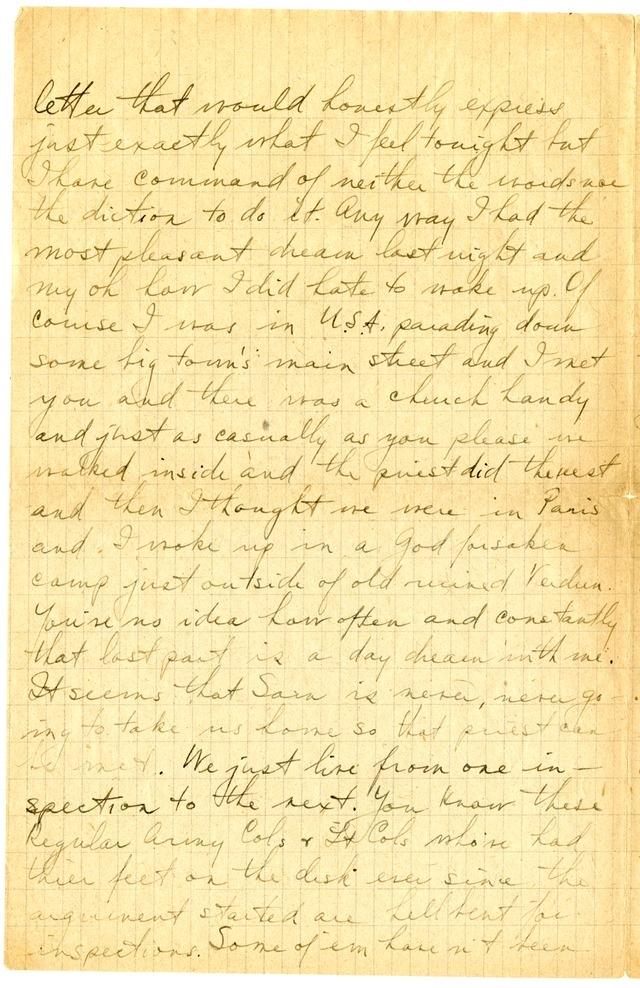 letter that would honestly express
just exactly what I feel tonight but
I have command of neither the words nor
the diction to do it. Any way I had the
most pleasant dream last night and
my oh how I did hate to wake up. Of
course I was in U.S.A. parading down
some big town's main street and I met
you and there was a church handy
and just as casually as you please we
walked inside and the priest did the rest
and then I thought we were in Paris
and I woke up in a God forsaken
camp just outside of old ruined Verdun.
You've no idea how often and constantly
that last part is a day dream with me.
It seems that Sam is never, never go-
ing to take us home so that priest can
be met. We just live from one in-
spection to the next. You know these
Regular Army Cols & Lt Cols who've had
thier feet on the desk ever since the
arguement started are hellbent for
inspections. Some of em have n't been